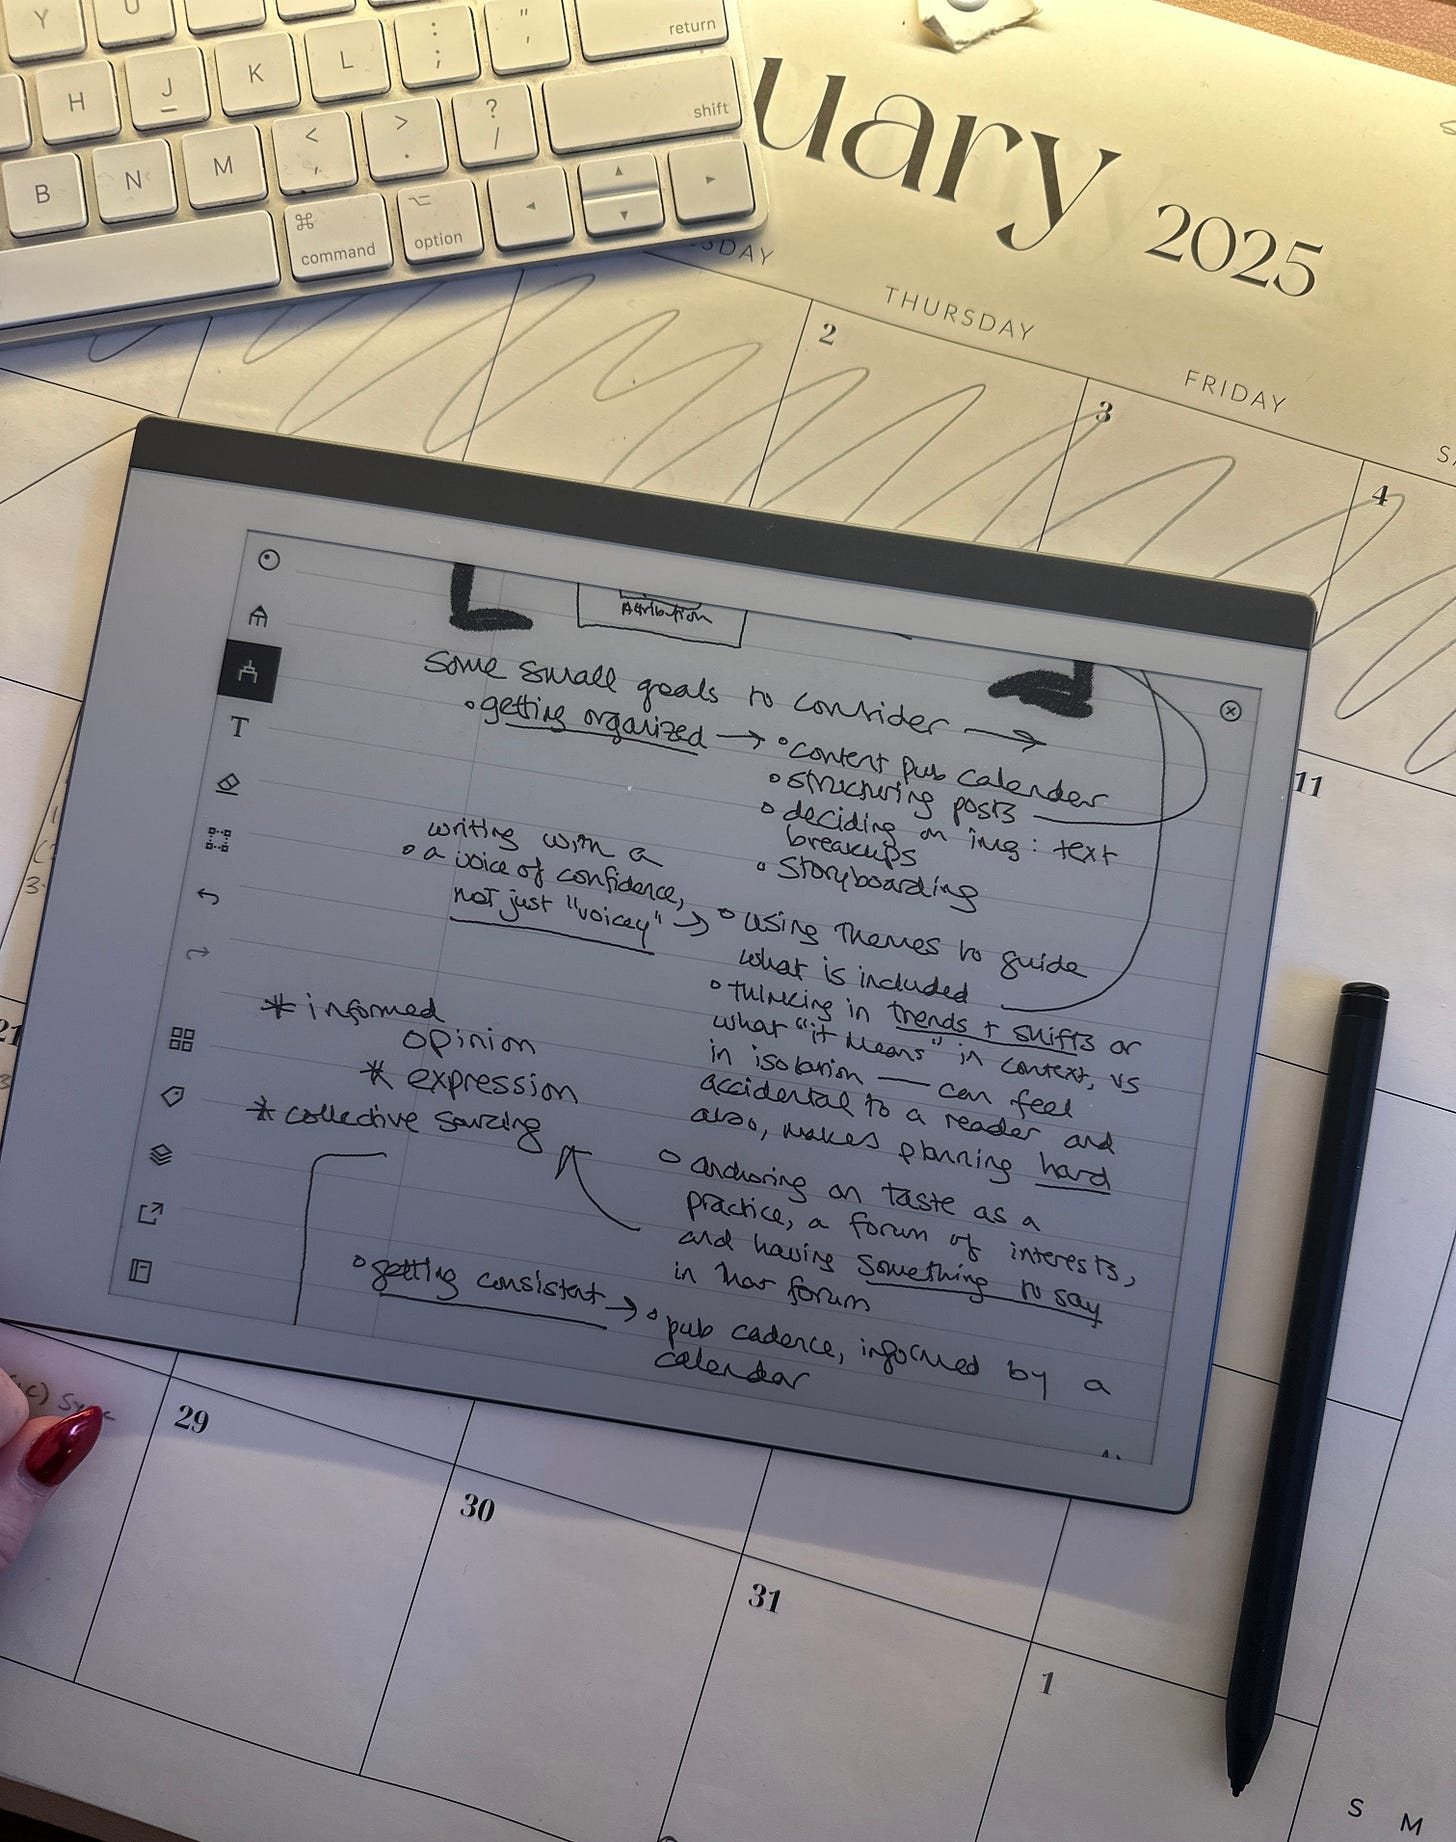 Y U
return
H J K L : ; " '
shift
B N M < , > . ? /
command option
uary 2025
THURSDAY
FRIDAY
2
3
4
11
Attribution
Some small goals to consider →
• getting organized → • content pub calender
• structuring posts
• deciding on img : text
breakups
• Storyboarding
writing with a
• a voice of confidence,
not just "voicey" → • using themes to guide
what is included
• thinking in trends + shifts or
what "it means" in context, vs
in isolation — can feel
accidental to a reader and
also, makes planning hard
* informed
opinion
* expression
* collective sourcing
• anchoring on taste as a
practice, a forum of interests,
and having something to say
in that forum
• getting consistent → • pub cadence, informed by a
calendar
T
21
29
30
31
1
S M